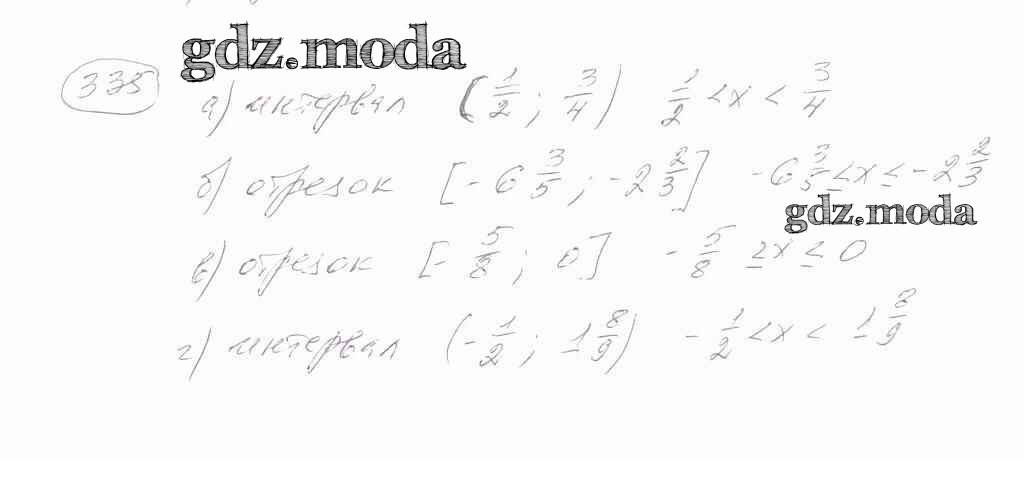 gdz.moda
335 а) интервал (1/2; 3/4) 1/2 < x < 3/4
б) отрезок [-6 3/5; -2 2/3] -6 3/5 ≤ x ≤ -2 2/3
gdz.moda
в) отрезок [-5/8; 0] -5/8 ≥ x ≤ 0
г) интервал (-1/2; 1 8/9) -1/2 < x < 1 8/9